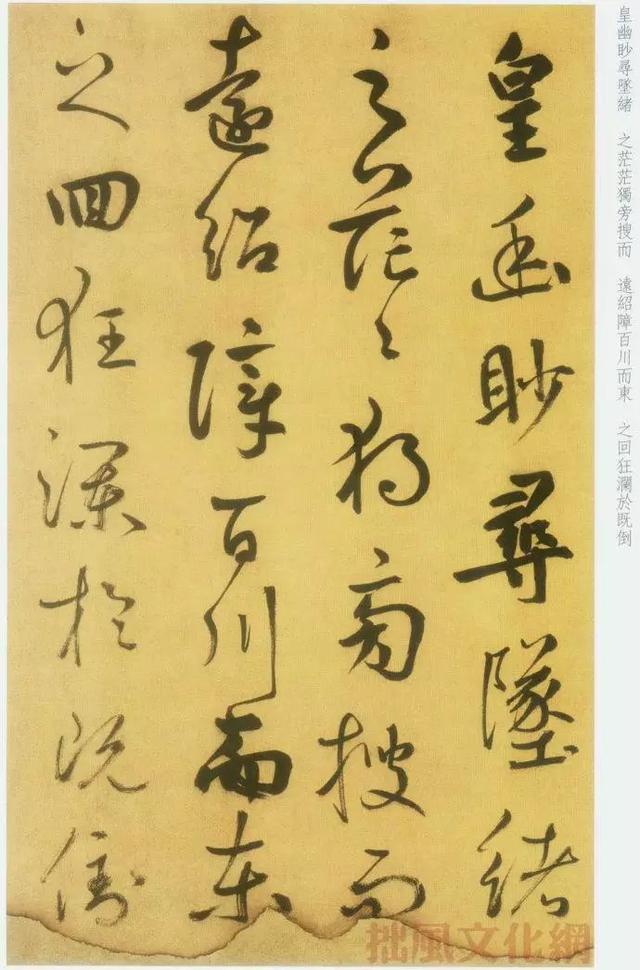 皇幽眇尋墜緒　之茫茫獨旁搜而　遠紹障百川而東　之回狂瀾於既倒
皇幽眇尋墜緒
之茫〻獨旁搜而
遠紹障百川而東
之回狂瀾於既倒
拙風文化網